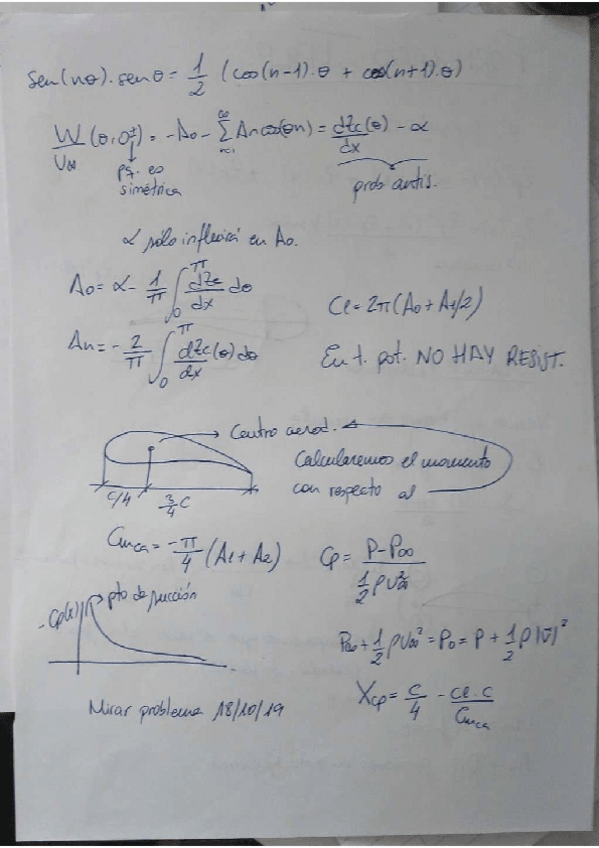 sen(nθ).senθ = 1/2 (cos(n-1).θ + cos(n+1).θ)
W/U∞ (θ,0±) = -A0 - Σ(n=1→∞) An cos(θn) = dZc(θ)/dx - α
pq. es
simétrica
prob antis.
α sólo influirá en A0.
A0 = α - 1/π ∫₀^π dZc/dx dθ
Cl = 2π(A0 + A1/2)
An = - 2/π ∫₀^π dZc(θ)/dx dθ
En t. pot. NO HAY RESIST.
Centro aerod.
Calcularemos el momento
con respecto al
c/4
3/4 c
Cmca = -π/4 (A1 + A2)
Cp = P-P∞ / 1/2 ρU∞²
-Cp(x)
pto de succión
P∞ + 1/2 ρU∞² = P0 = P + 1/2 ρ|v̄|²
Xcp = c/4 - cl.c/Cmca
Mirar problema 18/10/19